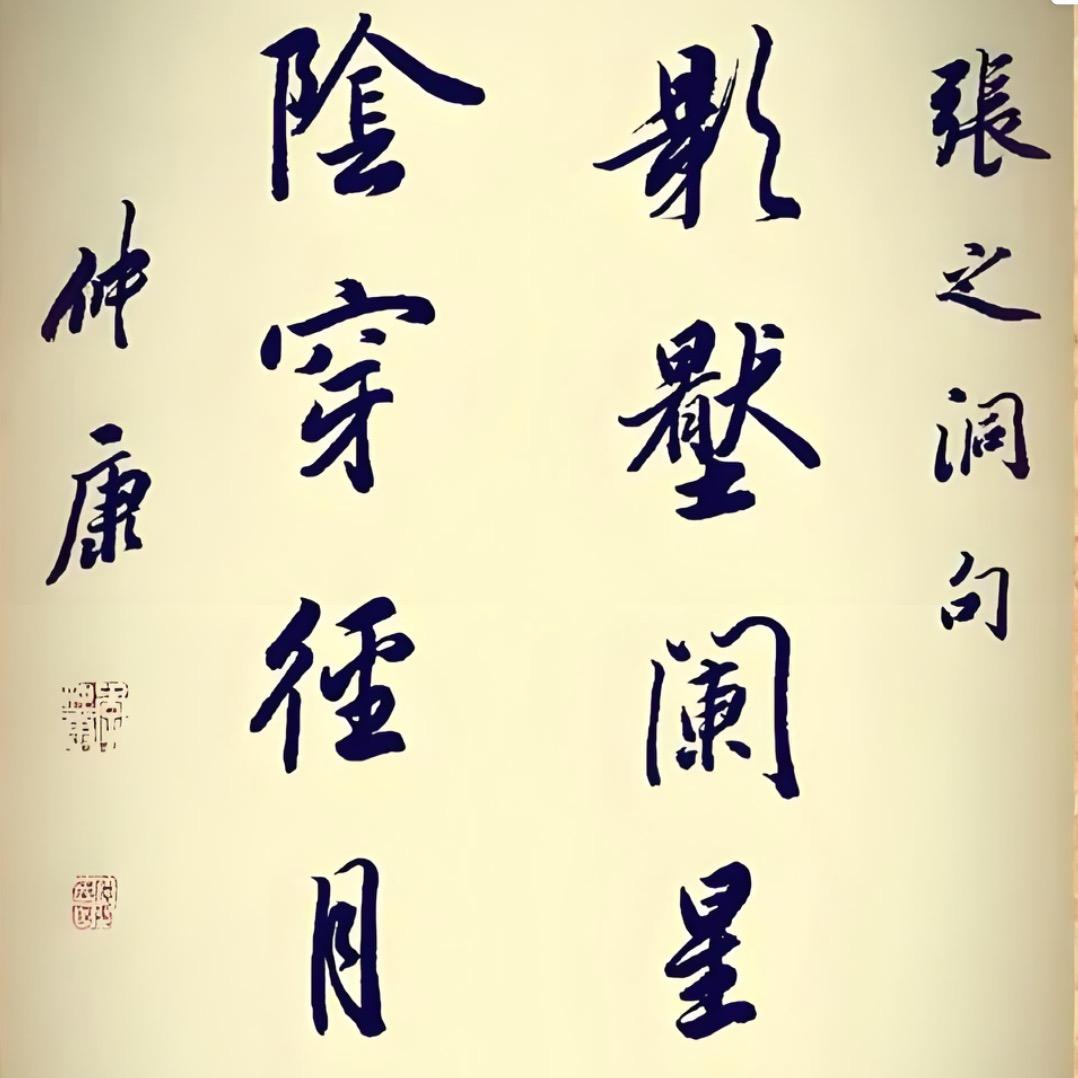 張之洞句
影壓闌星
陰穿徑月
仲康